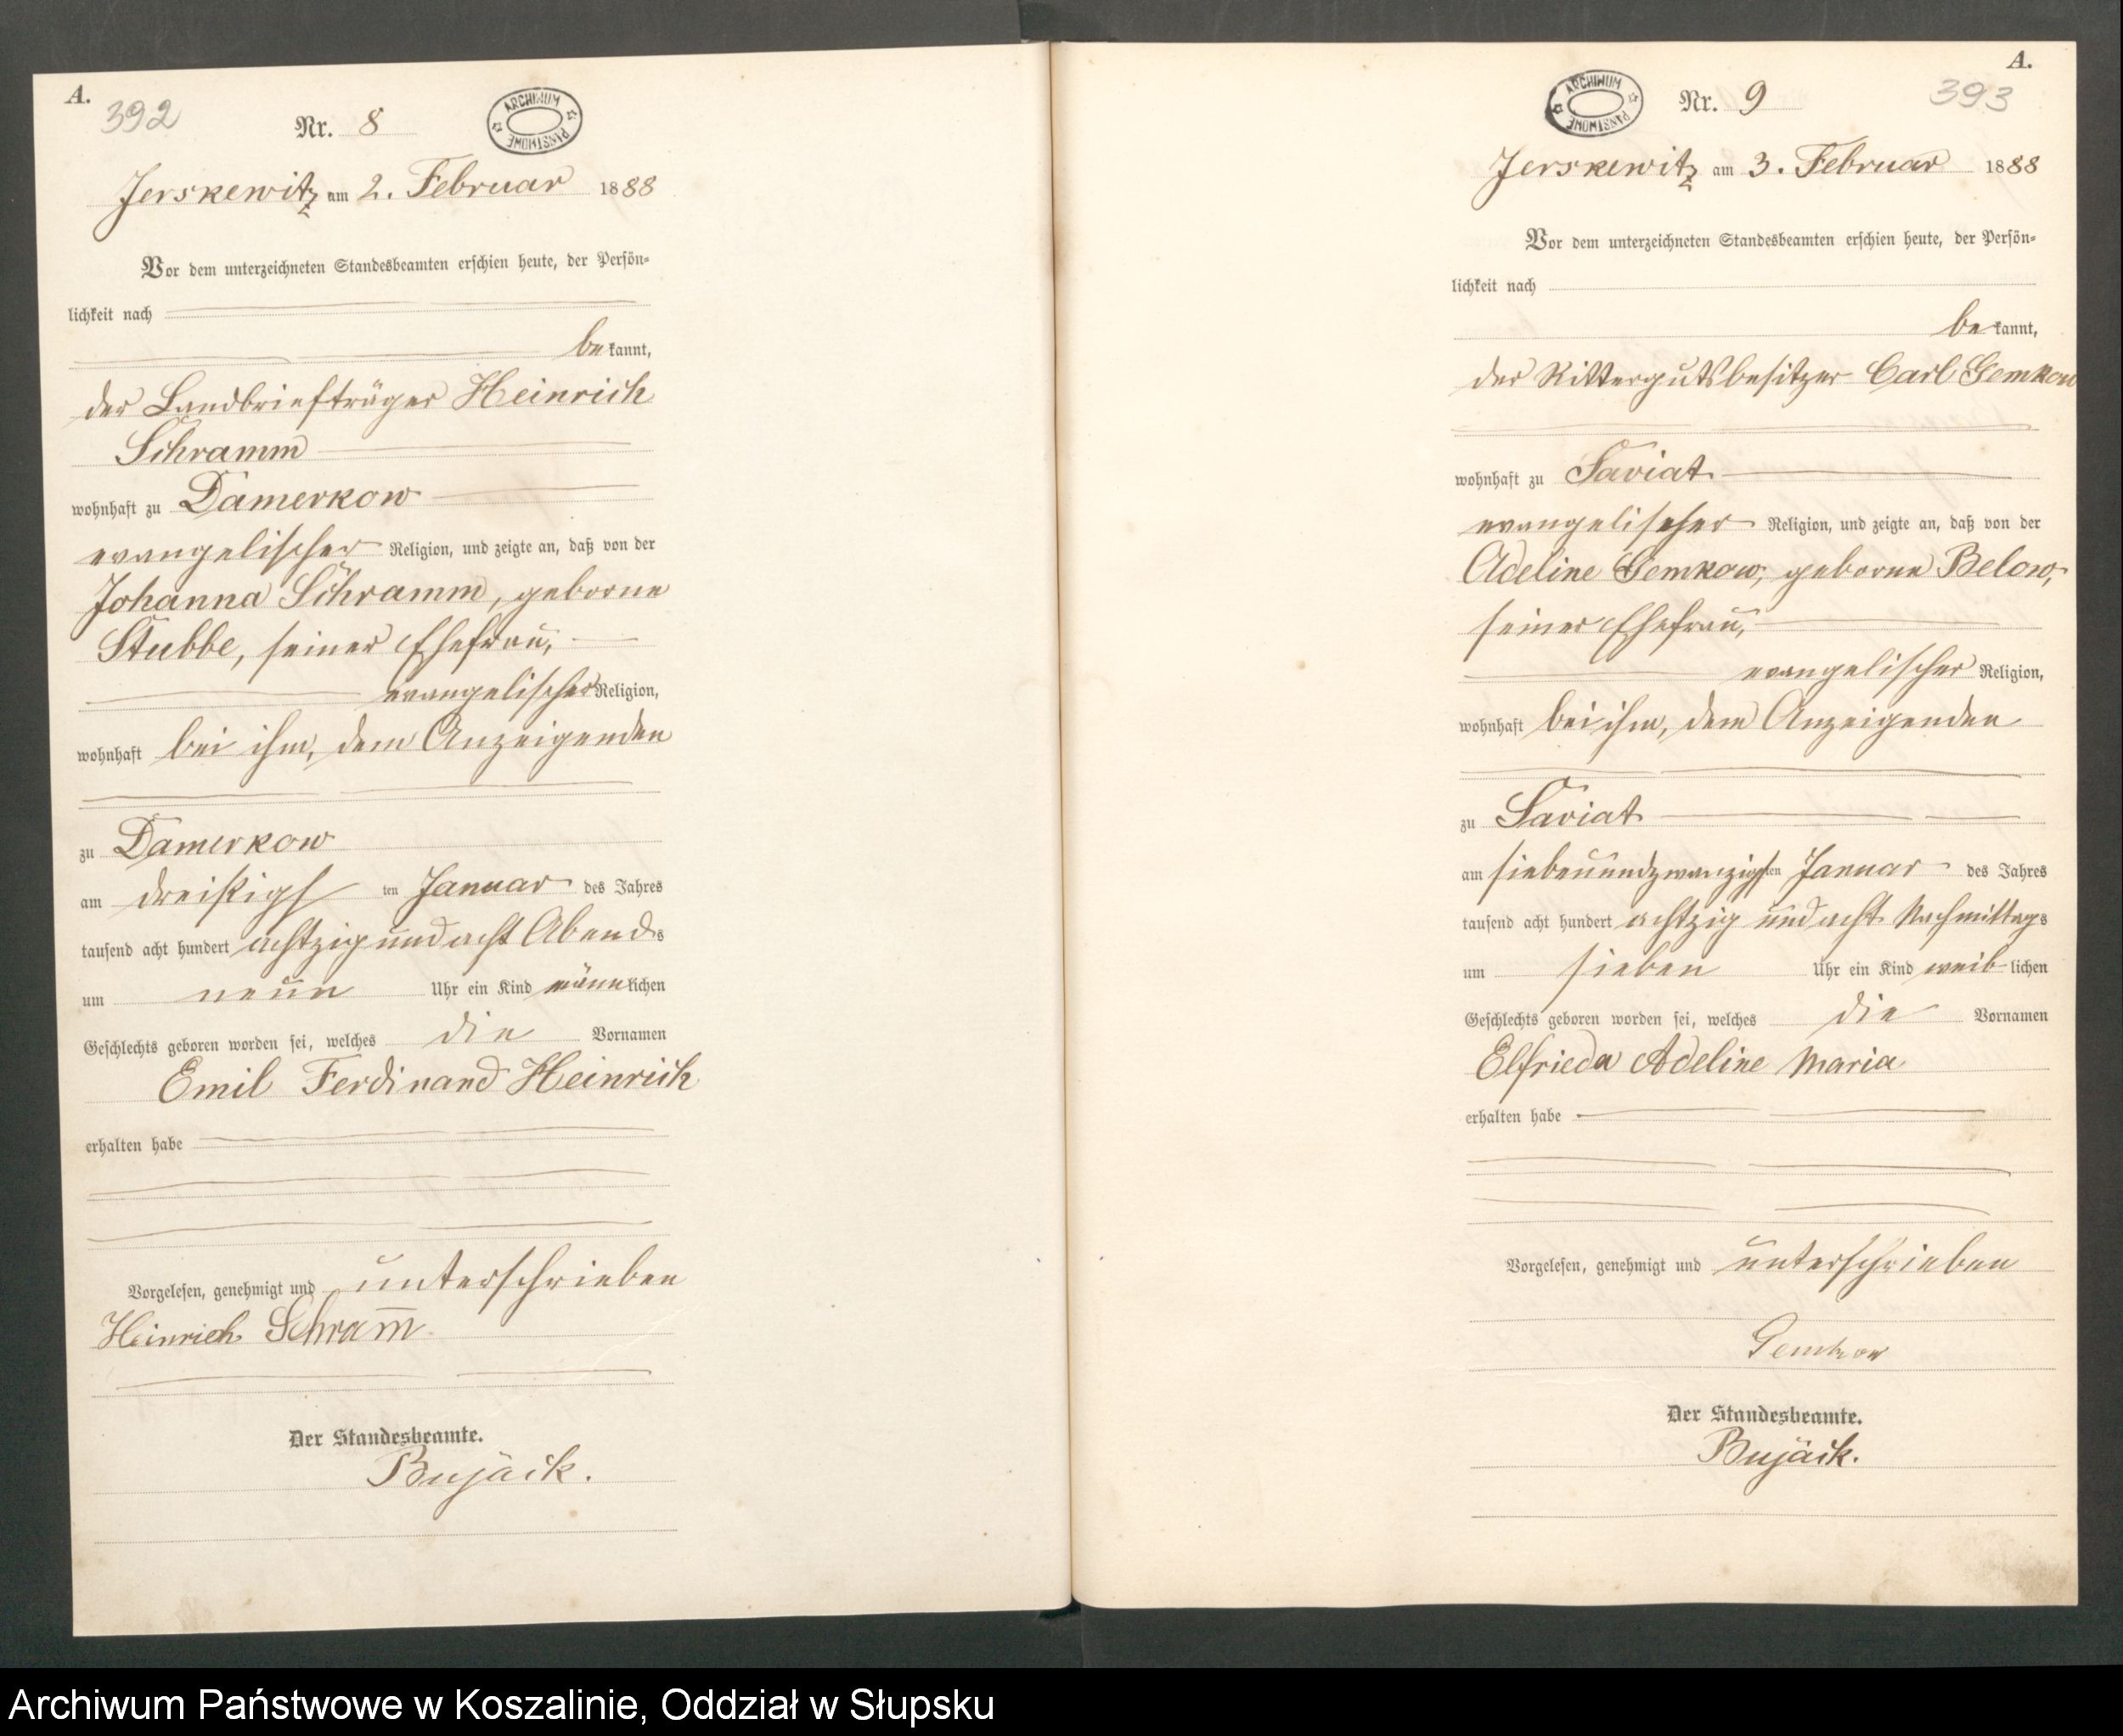 A.
392
Nr. 8
ARCHIWUM PAŃSTWOWE
Jerskewitz am 2. Februar 1888
Vor dem unterzeichneten Standesbeamten erschien heute, der Persön-
lichkeit nach
bekannt,
der Landbriefträger Heinrich
Schramm
wohnhaft zu Damerkow
evangelischer Religion, und zeigte an, daß von der
Johanna Schramm, geborne
Stubbe, seiner Ehefrau,
evangelischer Religion,
wohnhaft bei ihm, dem Anzeigenden
zu Damerkow
am dreißigsten Januar des Jahres
tausend acht hundert achtzig und acht Abends
um neun Uhr ein Kind männlichen
Geschlechts geboren worden sei, welches die Vornamen
Emil Ferdinand Heinrich
erhalten habe
Vorgelesen, genehmigt und unterschrieben
Heinrich Schram̅
Der Standesbeamte.
Bujäck.
A.
393
Nr. 9
ARCHIWUM PAŃSTWOWE
Jerskewitz am 3. Februar 1888
Vor dem unterzeichneten Standesbeamten erschien heute, der Persön-
lichkeit nach
bekannt,
der Rittergutsbesitzer Carl Gemkow
wohnhaft zu Saviat
evangelischer Religion, und zeigte an, daß von der
Adeline Gemkow, geborne Below,
seiner Ehefrau,
evangelischer Religion,
wohnhaft bei ihm, dem Anzeigenden
zu Saviat
am siebenundzwanzigsten Januar des Jahres
tausend acht hundert achtzig und acht Nachmittags
um sieben Uhr ein Kind weiblichen
Geschlechts geboren worden sei, welches die Vornamen
Elfrieda Adeline Maria
erhalten habe
Vorgelesen, genehmigt und unterschrieben
Gemkow
Der Standesbeamte.
Bujäck.
Archiwum Państwowe w Koszalinie, Oddział w Słupsku